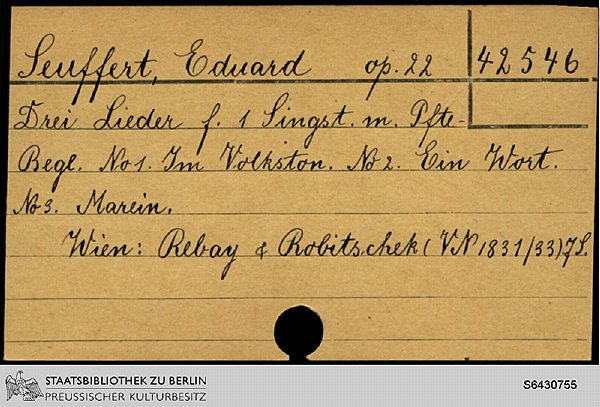 Seuffert, Eduard op. 22 42546
Drei Lieder f. 1 Singst. m. Pfte-
Begl. No 1. Im Volkston. No 2. Ein Wort.
No 3. Marein.
Wien: Rebay & Robitschek (VN 1831/33) 7 S.
STAATSBIBLIOTHEK ZU BERLIN
PREUSSISCHER KULTURBESITZ
S6430755